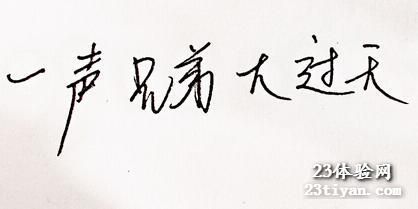 一声兄弟大过天
23体验网
23tiyan.com